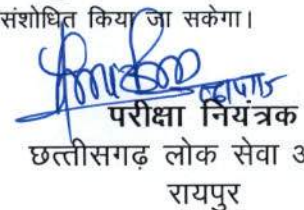 संशोधित किया जा सकेगा।
परीक्षा नियंत्रक
छत्तीसगढ़ लोक सेवा अ
रायपुर